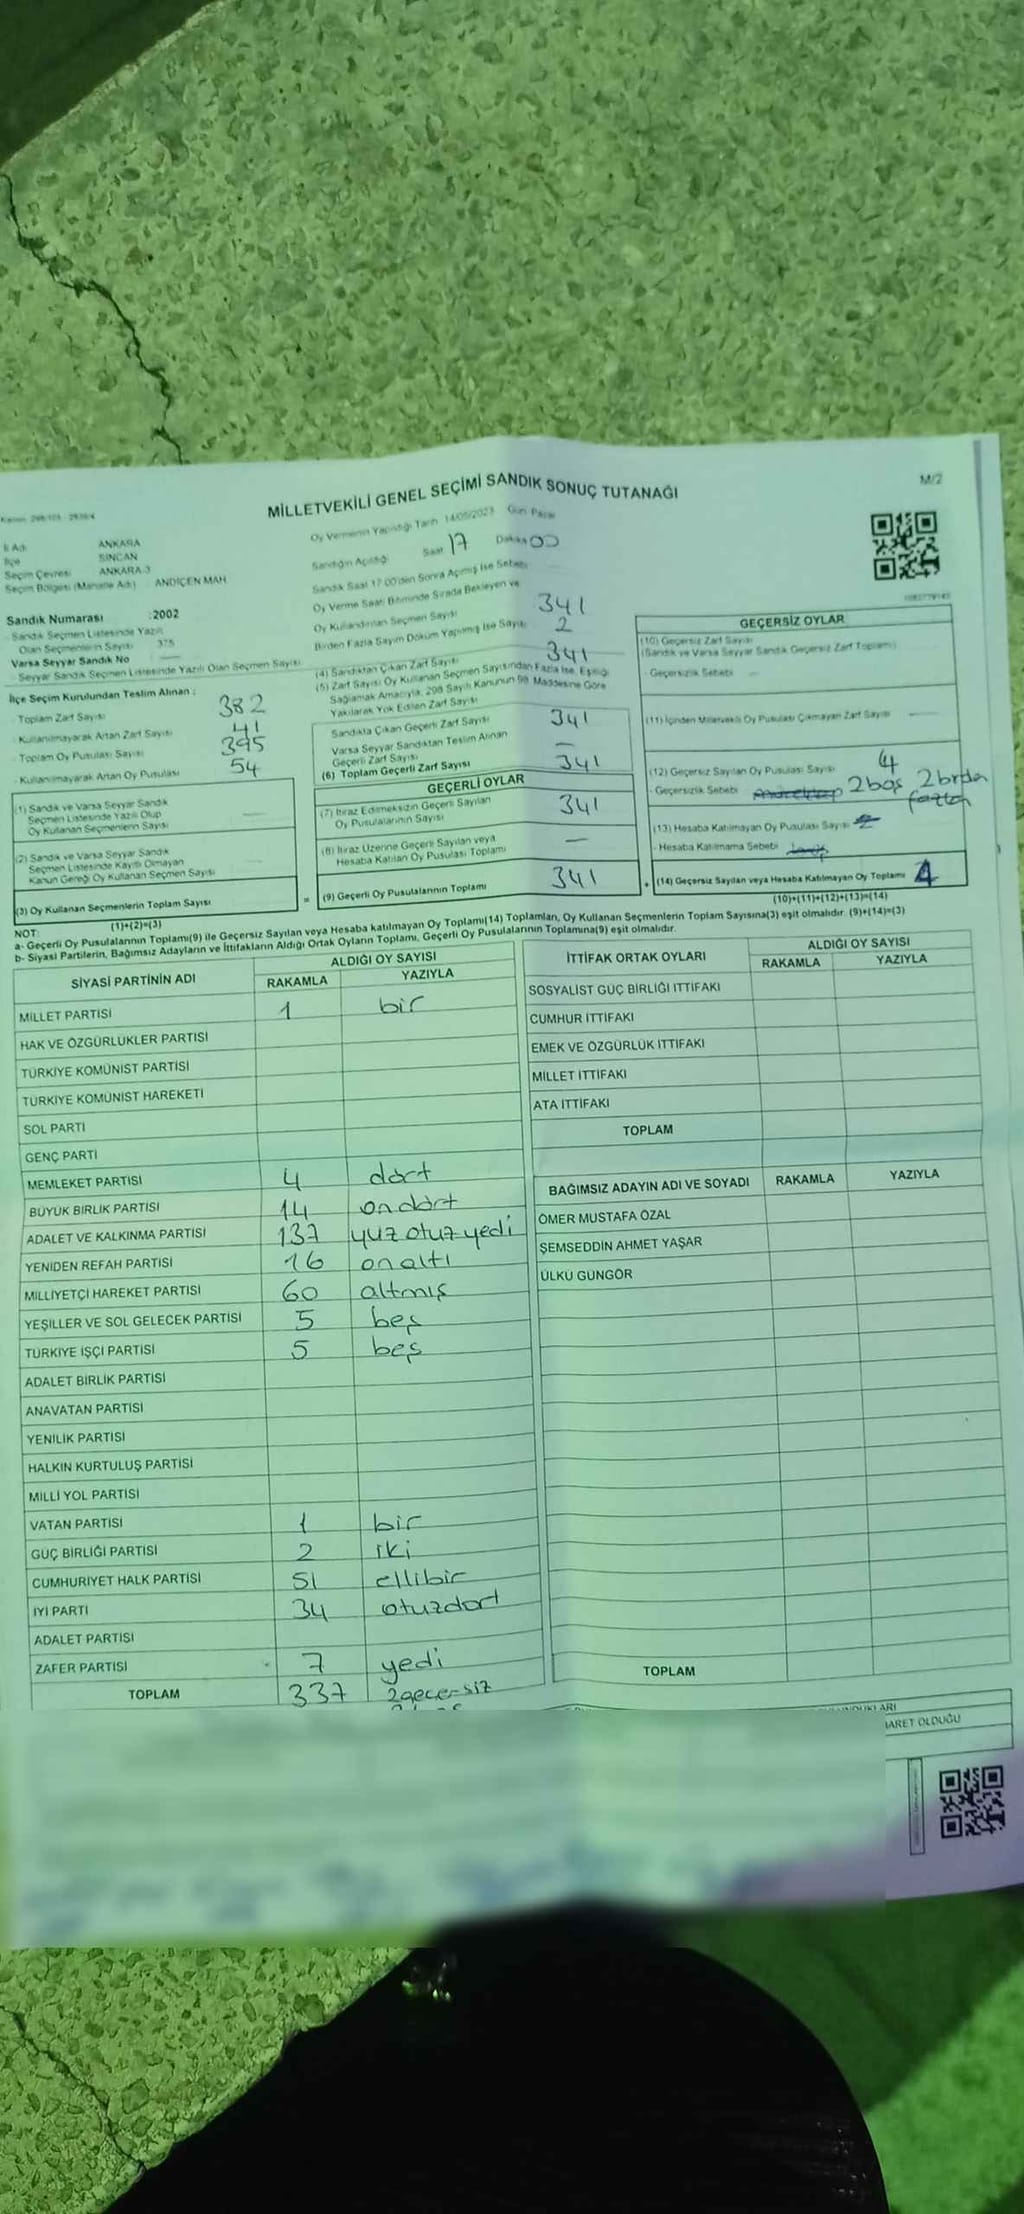 MİLLETVEKİLİ GENEL SEÇİMİ SANDIK SONUÇ TUTANAĞI
M/2
İl Adı ANKARA
İlçe SİNCAN
Seçim Çevresi ANKARA-3
Seçim Bölgesi (Mahalle Adı) ANDİÇEN MAH
Sandık Numarası :2002
Sandık Seçmen Listesinde Yazılı
Olan Seçmenlerin Sayısı 375
Varsa Seyyar Sandık No
Seyyar Sandık Seçmen Listesinde Yazılı Olan Seçmen Sayısı
İlçe Seçim Kurulundan Teslim Alınan :
Toplam Zarf Sayısı 382
Kullanılmayarak Artan Zarf Sayısı 41
Toplam Oy Pusulası Sayısı 395
Kullanılmayarak Artan Oy Pusulası 54
(1) Sandık ve Varsa Seyyar Sandık
Seçmen Listesinde Yazılı Olup
Oy Kullanan Seçmenlerin Sayısı
(2) Sandık ve Varsa Seyyar Sandık
Seçmen Listesinde Kayıtlı Olmayan
Kanun Gereği Oy Kullanan Seçmen Sayısı
(3) Oy Kullanan Seçmenlerin Toplam Sayısı
(1)+(2)=(3)
Oy Vermenin Yapıldığı Tarih 14/05/2023 Gün Pazar
Sandığın Açıldığı Saat 17 Dakika 00
Sandık Saat 17:00'den Sonra Açılmış İse Sebebi
Oy Verme Saati Bitiminde Sırada Bekleyen ve
Oy Kullandırılan Seçmen Sayısı 341
Birden Fazla Sayım Döküm Yapılmış İse Sayısı 2
(4) Sandıktan Çıkan Zarf Sayısı 341
(5) Zarf Sayısı Oy Kullanan Seçmen Sayısından Fazla İse, Eşitliği
Sağlamak Amacıyla, 298 Sayılı Kanunun 98. Maddesine Göre
Yakılarak Yok Edilen Zarf Sayısı
Sandıkta Çıkan Geçerli Zarf Sayısı 341
Varsa Seyyar Sandıktan Teslim Alınan
Geçerli Zarf Sayısı —
(6) Toplam Geçerli Zarf Sayısı 341
GEÇERLİ OYLAR
(7) İtiraz Edilmeksizin Geçerli Sayılan
Oy Pusulalarının Sayısı 341
(8) İtiraz Üzerine Geçerli Sayılan veya
Hesaba Katılan Oy Pusulası Toplamı —
= (9) Geçerli Oy Pusulalarının Toplamı 341 +
GEÇERSİZ OYLAR
(10) Geçersiz Zarf Sayısı
(Sandık ve Varsa Seyyar Sandık Geçersiz Zarf Toplamı)
Geçersizlik Sebebi
(11) İçinden Milletvekili Oy Pusulası Çıkmayan Zarf Sayısı
(12) Geçersiz Sayılan Oy Pusulası Sayısı 4
Geçersizlik Sebebi 2boş 2brdan
fazla
(13) Hesaba Katılmayan Oy Pusulası Sayısı
Hesaba Katılmama Sebebi
(14) Geçersiz Sayılan veya Hesaba Katılmayan Oy Toplamı 4
(10)+(11)+(12)+(13)=(14)
NOT:
a- Geçerli Oy Pusulalarının Toplamı(9) ile Geçersiz Sayılan veya Hesaba katılmayan Oy Toplamı(14) Toplamları, Oy Kullanan Seçmenlerin Toplam Sayısına(3) eşit olmalıdır. (9)+(14)=(3)
b- Siyasi Partilerin, Bağımsız Adayların ve İttifakların Aldığı Ortak Oyların Toplamı, Geçerli Oy Pusulalarının Toplamına(9) eşit olmalıdır.
SİYASİ PARTİNİN ADI ALDIĞI OY SAYISI
RAKAMLA YAZIYLA
MİLLET PARTİSİ 1 bir
HAK VE ÖZGÜRLÜKLER PARTİSİ
TÜRKİYE KOMÜNİST PARTİSİ
TÜRKİYE KOMÜNİST HAREKETİ
SOL PARTİ
GENÇ PARTİ
MEMLEKET PARTİSİ 4 dört
BÜYÜK BİRLİK PARTİSİ 14 ondört
ADALET VE KALKINMA PARTİSİ 137 yuz otuz yedi
YENİDEN REFAH PARTİSİ 16 onaltı
MİLLİYETÇİ HAREKET PARTİSİ 60 altmış
YEŞİLLER VE SOL GELECEK PARTİSİ 5 beş
TÜRKİYE İŞÇİ PARTİSİ 5 beş
ADALET BİRLİK PARTİSİ
ANAVATAN PARTİSİ
YENİLİK PARTİSİ
HALKIN KURTULUŞ PARTİSİ
MİLLİ YOL PARTİSİ
VATAN PARTİSİ 1 bir
GÜÇ BİRLİĞİ PARTİSİ 2 iki
CUMHURİYET HALK PARTİSİ 51 ellibir
İYİ PARTİ 34 otuzdört
ADALET PARTİSİ
ZAFER PARTİSİ 7 yedi
TOPLAM 337 2geçersiz
İTTİFAK ORTAK OYLARI ALDIĞI OY SAYISI
RAKAMLA YAZIYLA
SOSYALİST GÜÇ BİRLİĞİ İTTİFAKI
CUMHUR İTTİFAKI
EMEK VE ÖZGÜRLÜK İTTİFAKI
MİLLET İTTİFAKI
ATA İTTİFAKI
TOPLAM
BAĞIMSIZ ADAYIN ADI VE SOYADI RAKAMLA YAZIYLA
ÖMER MUSTAFA ÖZAL
ŞEMSEDDİN AHMET YAŞAR
ÜLKÜ GÜNGÖR
TOPLAM
OLDUĞU